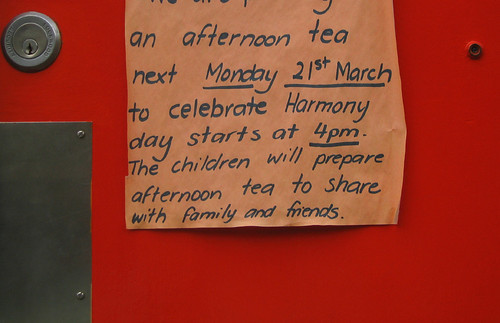 an afternoon tea
next Monday 21st March
to celebrate Harmony
day starts at 4pm.
The children will prepare
afternoon tea to share
with family and friends.